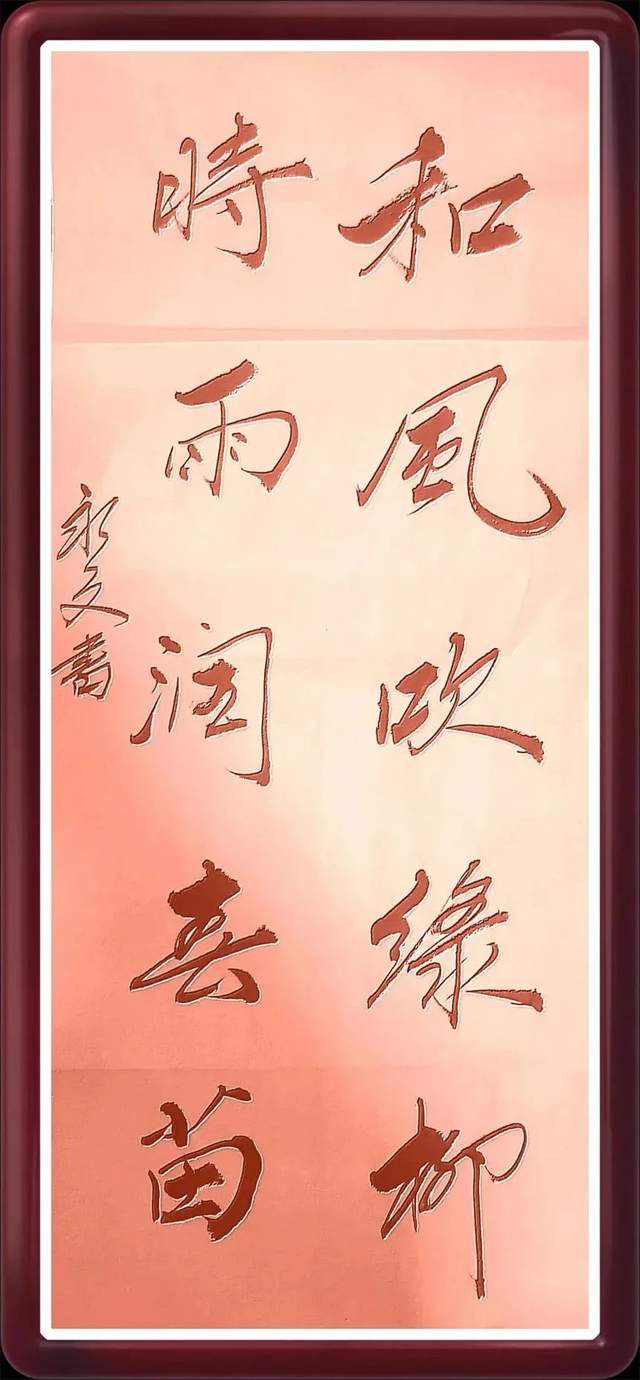 和風吹綠柳
時雨润春苗
永文書